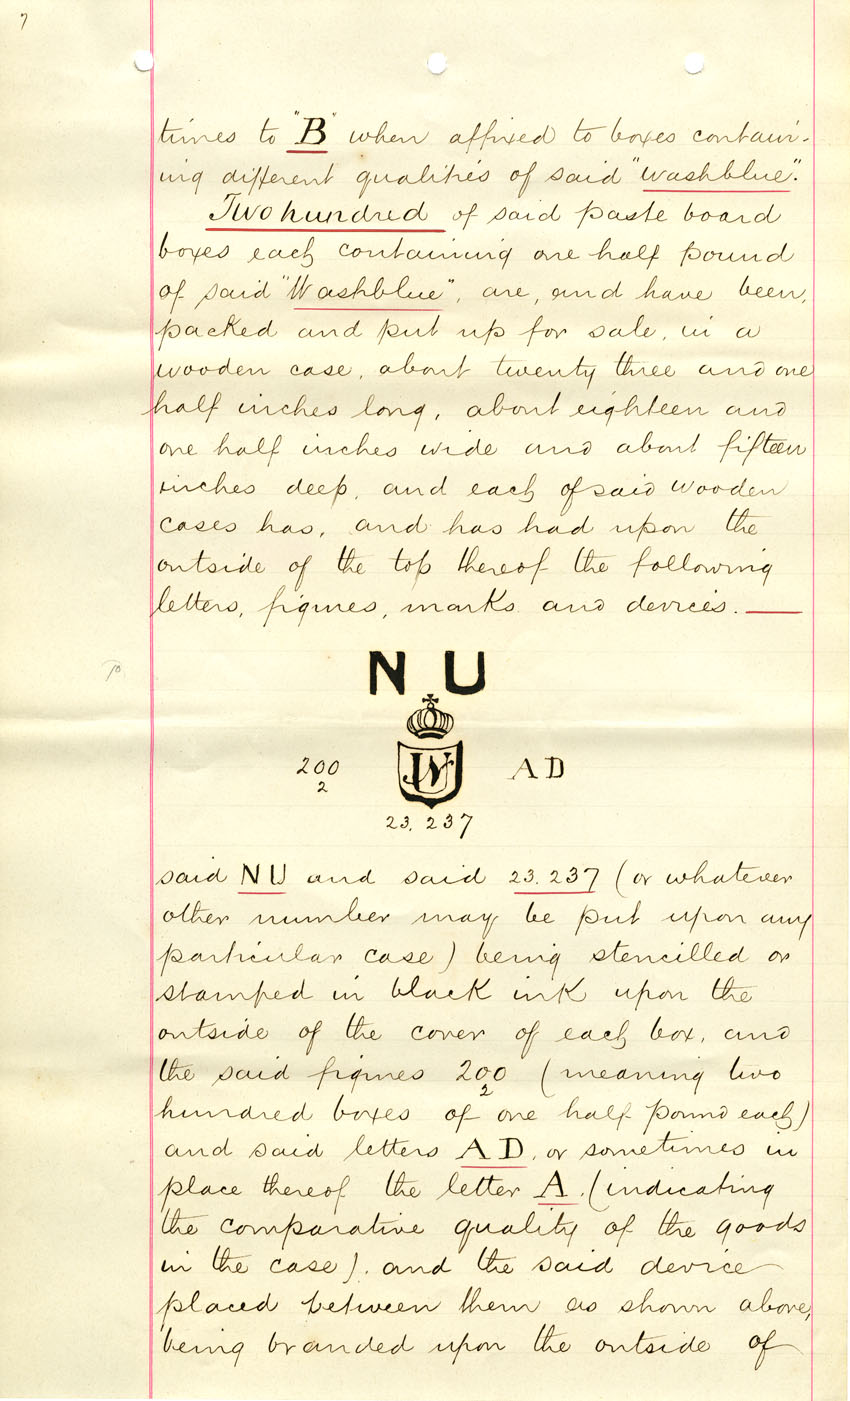 7
times to "B" when affixed to boxes contain-
ing different qualities of said "Washblue".
Two hundred of said paste board
boxes each containing one half pound
of said "Washblue", are, and have been,
packed and put up for sale, in a
wooden case, about twenty three and one
half inches long, about eighteen and
one half inches wide and about fifteen
inches deep, and each of said wooden
cases has, and has had upon the
outside of the top thereof the following
letters, figures, marks and devices.
N U
200 AD
2
23.237
said NU and said 23.237 (or whatever
other number may be put upon any
particular case) being stencilled or
stamped in black ink upon the
outside of the cover of each box, and
the said figures 200 (meaning two
2
hundred boxes of one half pound each)
and said letters AD, or sometimes in
place thereof the letter A, (indicating
the comparative quality of the goods
in the case), and the said device
placed between them as shown above,
being branded upon the outside of